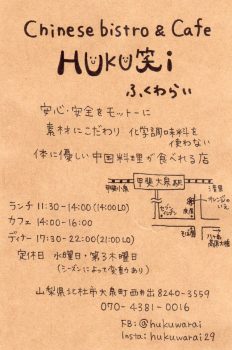 Chinese bistro & Cafe
HUKU笑i
ふくわらい
安心・安全をモットーに
素材にこだわり 化学調味料を
使わない
体に優しい中国料理が食べれる店
甲斐小泉
甲斐大泉駅
清里
ランチ 11:30-14:00 (14:00LO)
カフェ 14:00-16:00
ディナー 17:30-22:00 (21:00LO)
定休日 水曜日・第3木曜日
(シーズンによって変動あり)
山梨県北杜市大泉町西井出8240-3559
070-4381-0016
FB: @hukuwarai
Insta: hukuwarai29